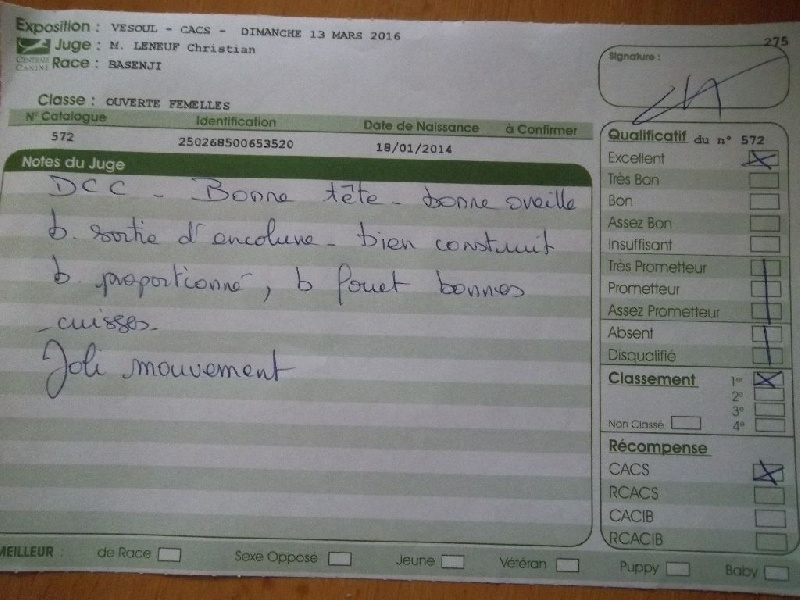 Exposition : VESOUL - CACS - DIMANCHE 13 MARS 2016
Juge : M. LENEUF Christian
CENTRALE CANINE Race : BASENJI
275
Signature :
Classe : OUVERTE FEMELLES
N° Catalogue Identification Date de Naissance à Confirmer
572 250268500653520 18/01/2014
Notes du Juge
DCC - Bonne tête - bonne oreille
b. sortie d'encolure - bien construit
b proportionné, b fouet bonnes
cuisses -
Joli mouvement
Qualificatif du n° 572
Excellent
Très Bon
Bon
Assez Bon
Insuffisant
Très Prometteur
Prometteur
Assez Prometteur
Absent
Disqualifié
Classement 1er
2e
3e
Non Classé 4e
Récompense
CACS
RCACS
CACIB
RCACIB
MEILLEUR : de Race Sexe Opposé Jeune Vétéran Puppy Baby